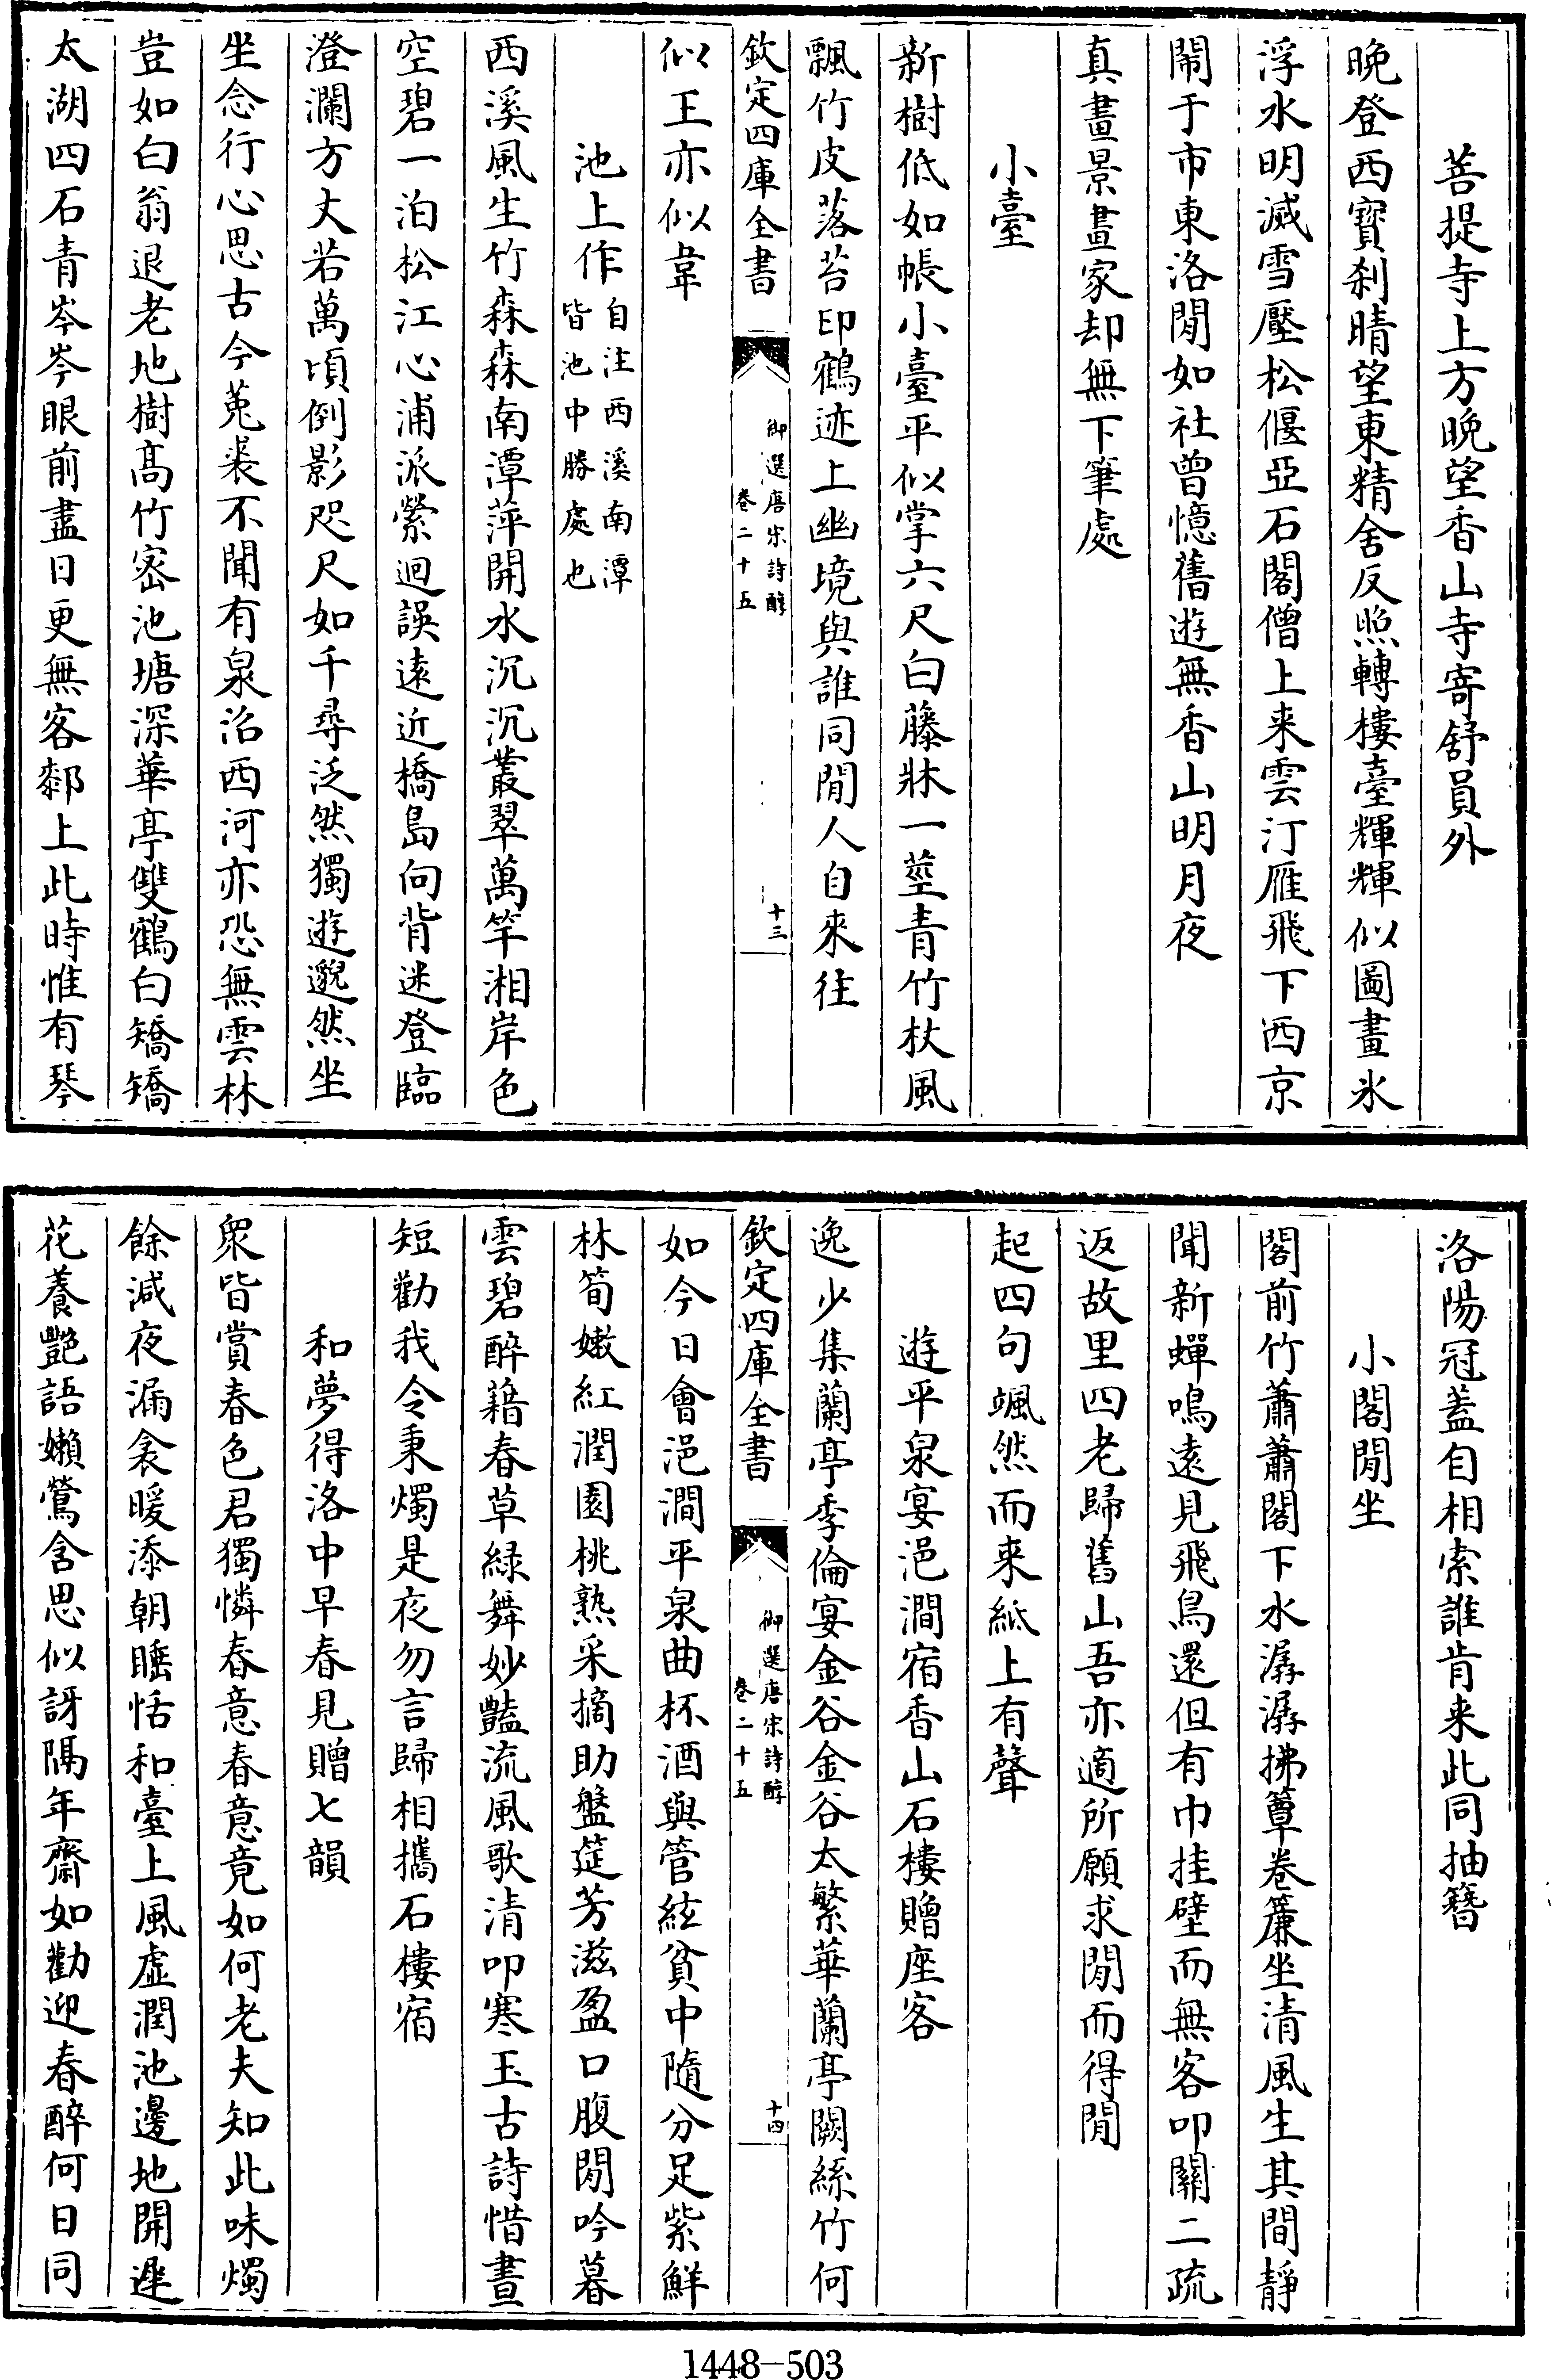 菩提寺上方晚望香山寺寄舒員外
晚登西寶刹晴望東精舍反照轉樓臺輝輝似圖畫氷
浮水明滅雪壓松偃亞石閣僧上来雲汀雁飛下西京
鬧于市東洛閒如社曾憶舊遊無香山明月夜
真畫景畫家却無下筆處
小臺
新樹低如帳小臺平似掌六尺白藤牀一莖青竹杖風
飄竹皮落苔印鶴迹上幽境與誰同閒人自來往
欽定四庫全書
御選唐宋詩醇
卷二十五
十三
似王亦似韋
池上作
自注西溪南潭
皆池中勝處也
西溪風生竹森森南潭萍開水沉沉叢翠萬竿湘岸色
空碧一泊松江心浦派縈迴誤遠近橋島向背迷登臨
澄瀾方丈若萬頃倒影咫尺如千尋泛然獨遊邈然坐
坐念行心思古今菟裘不聞有泉沼西河亦恐無雲林
豈如白翁退老地樹髙竹密池塘深華亭雙鶴白矯矯
太湖四石青岑岑眼前盡日更無客鄰上此時惟有琴
洛陽冠蓋自相索誰肯来此同抽簪
小閣閒坐
閣前竹蕭蕭閣下水潺潺拂簟卷簾坐清風生其間靜
聞新蟬鳴遠見飛鳥還但有巾挂壁而無客叩關二疏
返故里四老歸舊山吾亦適所願求閒而得閒
起四句颯然而来紙上有聲
遊平泉宴浥澗宿香山石樓贈座客
逸少集蘭亭季倫宴金谷金谷太繁華蘭亭闕絲竹何
欽定四庫全書
御選唐宋詩醇
卷二十五
十四
如今日會浥澗平泉曲杯酒與管絃貧中隨分足紫鮮
林筍嫩紅潤園桃熟采摘助盤筵芳滋盈口腹閒吟暮
雲碧醉藉春草緑舞妙豔流風歌清叩寒玉古詩惜晝
短勸我令秉燭是夜勿言歸相攜石樓宿
和夢得洛中早春見贈七韻
衆皆賞春色君獨憐春意春意竟如何老夫知此味燭
餘減夜漏衾暖添朝睡恬和臺上風虛潤池邊地開遲
花養艷語嬾鶯含思似訝隔年齋如勸迎春醉何日同
1448-503